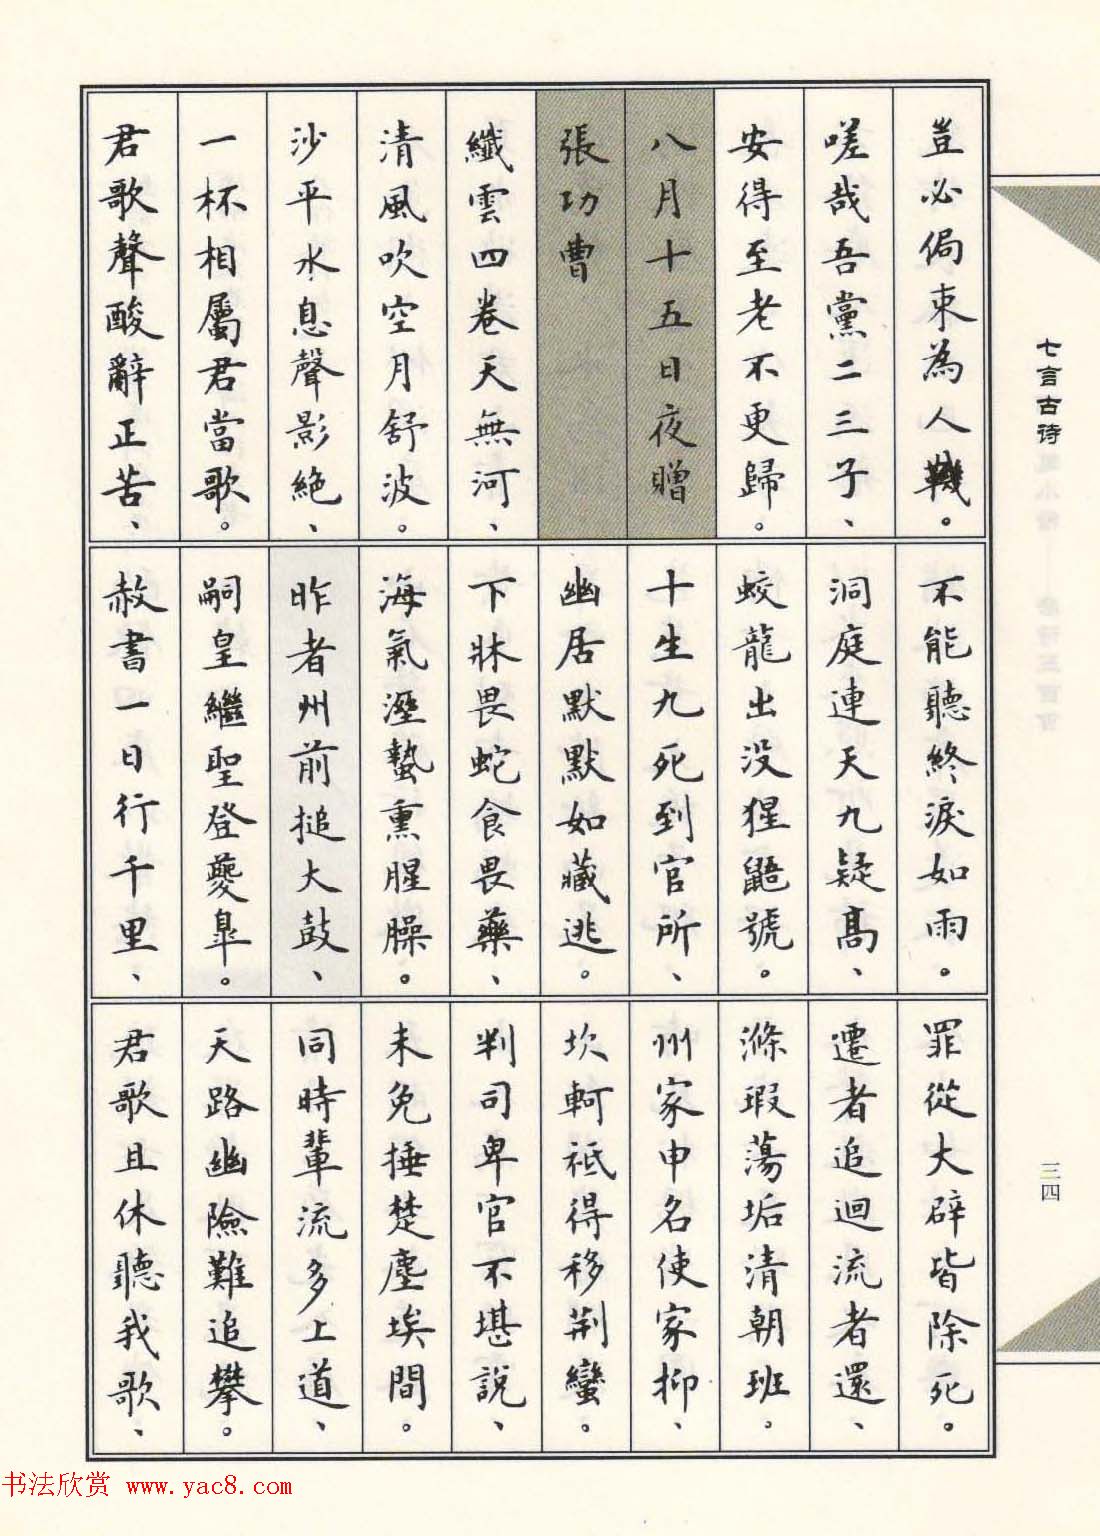 豈必侷束為人鞿。
嗟哉吾黨二三子、
安得至老不更歸。
八月十五日夜贈
張功曹
纖雲四卷天無河、
清風吹空月舒波。
沙平水息聲影絕、
一杯相屬君當歌。
君歌聲酸辭正苦、
不能聽終淚如雨。
洞庭連天九疑高、
蛟龍出没猩鼯號。
十生九死到官所、
幽居默默如藏逃。
下牀畏蛇食畏藥、
海氣溼蟄熏腥臊。
昨者州前搥大鼓、
嗣皇繼聖登夔皐。
赦書一日行千里、
罪從大辟皆除死。
遷者追迴流者還、
滌瑕蕩垢清朝班。
州家申名使家抑、
坎軻祇得移荆蠻。
判司卑官不堪說、
未免捶楚塵埃間。
同時輩流多上道、
天路幽險難追攀。
君歌且休聽我歌、
七言古诗
三四
书法欣赏 www.yac8.com